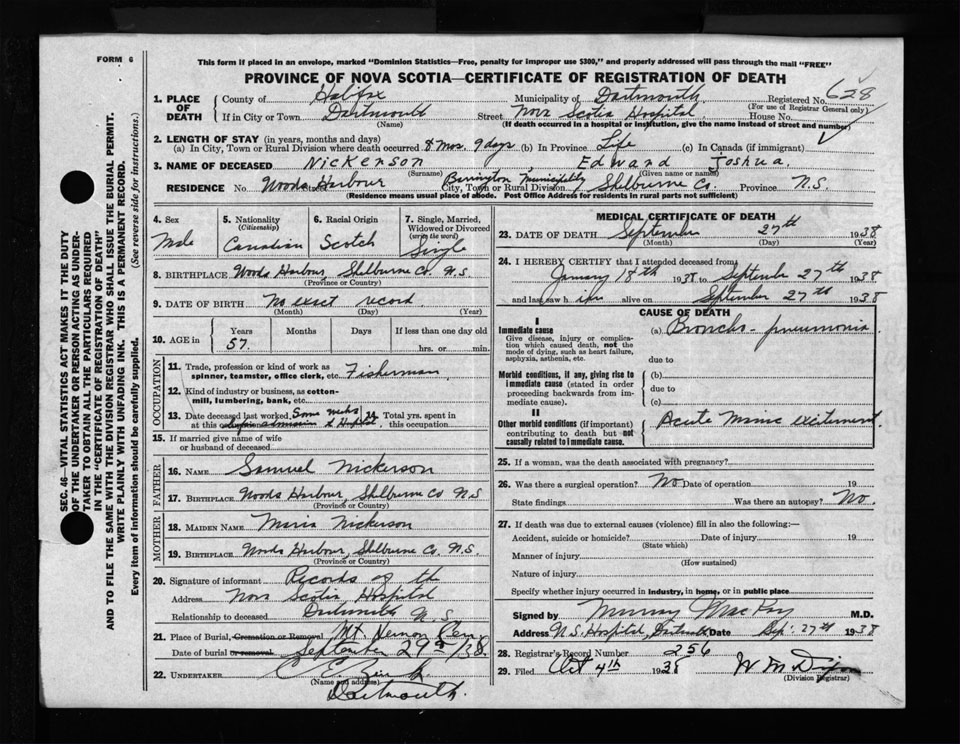 FORM 6
This form if placed in an envelope, marked "Dominion Statistics—Free, penalty for improper use $300," and properly addressed will pass through the mail "FREE"
PROVINCE OF NOVA SCOTIA—CERTIFICATE OF REGISTRATION OF DEATH
SEC. 46—VITAL STATISTICS ACT MAKES IT THE DUTY
OF THE UNDERTAKER OR PERSON ACTING AS UNDER-
TAKER TO OBTAIN ALL THE PARTICULARS REQUIRED
IN THE "CERTIFICATE OF REGISTRATION OF DEATH"
AND TO FILE THE SAME WITH THE DIVISION REGISTRAR WHO SHALL ISSUE THE BURIAL PERMIT.
WRITE PLAINLY WITH UNFADING INK. THIS IS A PERMANENT RECORD.
Every item of information should be carefully supplied. (See reverse side for instructions.)
1. PLACE OF DEATH County of Halifax Municipality of Dartmouth Registered No. 628
(For use of Registrar General only)
If in City or Town Dartmouth Street Nova Scotia Hospital House No.
(Name) (If death occurred in a hospital or institution, give the name instead of street and number)
2. LENGTH OF STAY (in years, months and days)
(a) In City, Town or Rural Division where death occurred 8 mos. 9 days (b) In Province Life (c) In Canada (if immigrant)
3. NAME OF DECEASED Nickerson Edward Joshua.
(Surname) (Given name or names)
RESIDENCE No. Woods Harbour Barrington Municipality City, Town or Rural Division Shelburne Co. Province N.S.
(Residence means usual place of abode. Post Office Address for residents in rural parts not sufficient)
4. Sex Male
5. Nationality (Citizenship) Canadian
6. Racial Origin Scotch
7. Single, Married, Widowed or Divorced (write the word) Single
8. BIRTHPLACE Woods Harbour, Shelburne Co. N.S
(Province or Country)
9. DATE OF BIRTH No exact record.
(Month) (Day) (Year)
10. AGE in Years 57. Months Days If less than one day old hrs. or min.
OCCUPATION
11. Trade, profession or kind of work as spinner, teamster, office clerk, etc. Fisherman.
12. Kind of industry or business, as cotton-mill, lumbering, bank, etc.
13. Date deceased last worked at this Some weeks admission to Hospital Total yrs. spent in this occupation
15. If married give name of wife or husband of deceased
FATHER
16. NAME Samuel Nickerson
17. BIRTHPLACE Woods Harbour, Shelburne Co N.S
(Province or Country)
MOTHER
18. MAIDEN NAME Maria Nickerson
19. BIRTHPLACE Woods Harbour, Shelburne Co. N.S.
(Province or Country)
20. Signature of informant Records of the
Address Nova Scotia Hospital
Relationship to deceased Dartmouth N.S.
21. Place of Burial, Cremation or Removal Mt. Hermon Cem.
Date of burial or removal September 29th/38.
22. UNDERTAKER C. E.
(Name and address)
Dartmouth.
MEDICAL CERTIFICATE OF DEATH
23. DATE OF DEATH September 27th 1938
(Month) (Day) (Year)
24. I HEREBY CERTIFY that I attended deceased from
January 18th 1938 to September 27th 1938
and last saw h im alive on September 27th 1938
CAUSE OF DEATH
I
Immediate cause (a) Broncho-pneumonia.
Give disease, injury or complica-
tion which caused death, not the
mode of dying, such as heart failure,
asphyxia, asthenia, etc. due to
Morbid conditions, if any, giving rise to (b)
immediate cause (stated in order due to
proceeding backwards from im-
mediate cause). (c)
II
Other morbid conditions (if important) Acute Manic excitement
contributing to death but not
causally related to immediate cause.
25. If a woman, was the death associated with pregnancy?
26. Was there a surgical operation? No Date of operation 19
State findings Was there an autopsy? No.
27. If death was due to external causes (violence) fill in also the following:—
Accident, suicide or homicide? Date of injury 19
(State which)
Manner of injury
(How sustained)
Nature of injury
Specify whether injury occurred in industry, in home, or in public place
Signed by Murray MacKay M.D.
Address N.S. Hospital, Dartmouth Date Sep. 27th 1938
28. Registrar's Record Number 256
29. Filed Oct 4th 1938 W. M.
(Division Registrar)